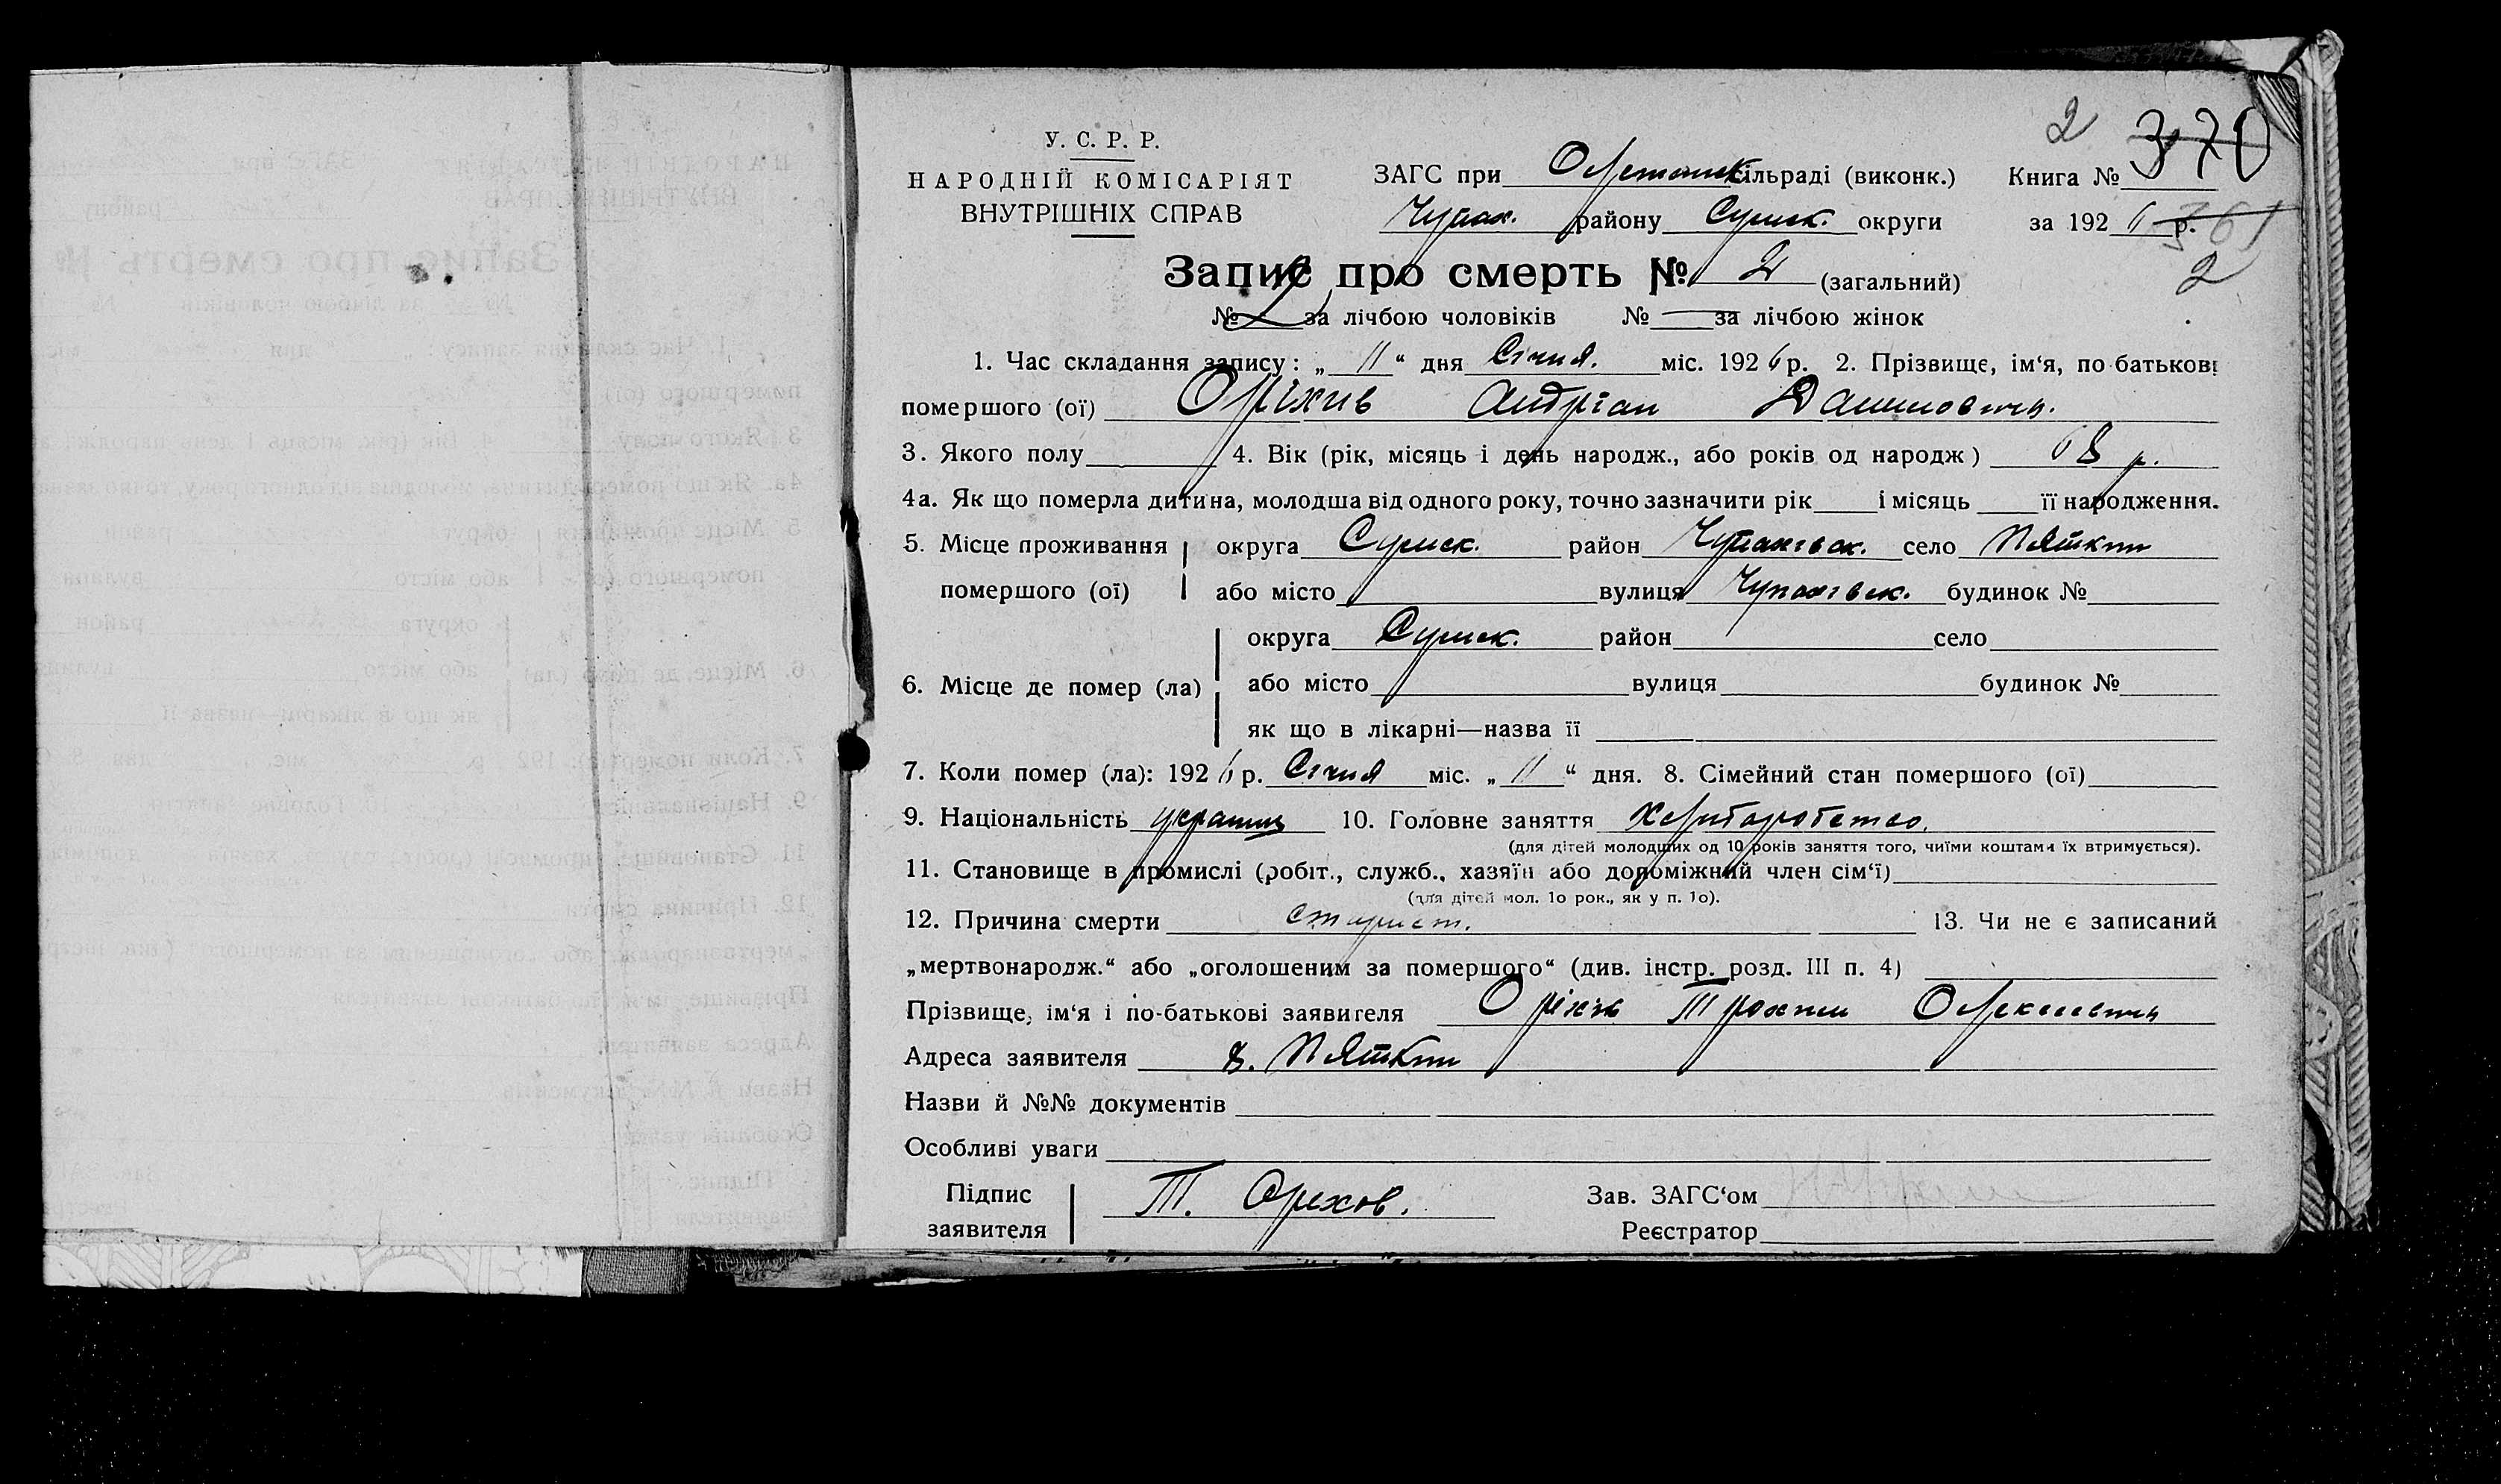 У. С. Р. Р.
НАРОДНІЙ КОМІСАРІЯТ
ВНУТРІШНІХ СПРАВ
2 370
ЗАГС при сільраді (виконк.) Книга №
Чупах. району Сумск. округи за 1926 р.
361
2
Запис про смерть № 2 (загальний)
№ 2 за лічбою чоловіків № — за лічбою жінок
1. Час складання запису: „ 11 “ дня Січня. міс. 1926 р. 2. Прізвище, ім‘я, по батькові
помершого (ої) Оріхив Андріан Данилович.
3. Якого полу 4. Вік (рік, місяць і день народж., або років од народж) 68 р.
4а. Як що померла дитина, молодша від одного року, точно зазначити рік і місяць її народження.
5. Місце проживання округа Сумск. район Чупахівск. село Пяткин
помершого (ої) або місто вулиця Чупахівск. будинок №
округа Сумск. район село
6. Місце де помер (ла) або місто вулиця будинок №
як що в лікарні—назва її
7. Коли помер (ла): 1926 р. Січня міс. „ 11 “ дня. 8. Сімейний стан помершого (ої)
9. Національність 10. Головне заняття
(для дітей молодших од 10 років заняття того, чиїми коштами їх втримується).
11. Становище в промислі (робіт., служб., хазяїн або допоміжний член сім‘ї)
(для дітей мол. 1о рок., як у п. 1о).
12. Причина смерти старист. 13. Чи не є записаний
„мертвонародж.“ або „оголошеним за помершого“ (див. інстр. розд. III п. 4)
Прізвище, ім‘я і по-батькові заявителя Оріхів Трохим Олексеевич
Адреса заявителя х. Пяткин
Назви й №№ документів
Особливі уваги
Підпис
заявителя
Т. Орехов.
Зав. ЗАГС‘ом
Реєстратор